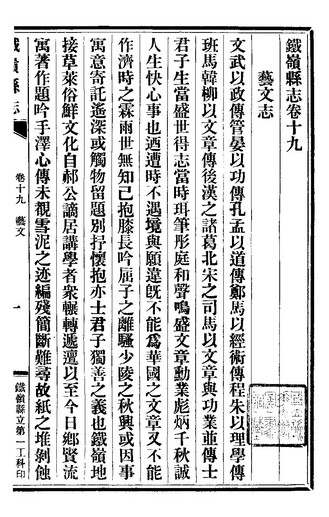 鐵嶺縣志卷十九
藝文志
文武以政傳管晏以功傳孔孟以道傳鄭馬以經術傳程朱以理學傳
班馬韓柳以文章傳後漢之諸葛北宋之司馬以文章與功業並傳士
君子生當盛世得志當時珥筆彤庭和聲鳴盛文章勳業彪炳千秋誠
人生快心事也迺遭時不遇境與願違旣不能爲華國之文章又不能
作濟時之霖雨世無知己抱膝長吟屈子之離騷少陵之秋興或因事
寓意寄託遙深或觸物留題別抒懷抱亦士君子獨善之義也鐵嶺地
接草萊俗鮮文化自郝公謫居講學者衆輾轉遞邅以至今日鄉賢流
寓著作題吟手澤心傳未覩雪泥之迹編殘簡斷難尋故紙之堆剝蝕
鐵嶺縣志
卷十九
藝文
一
鐵嶺縣立第一工科印